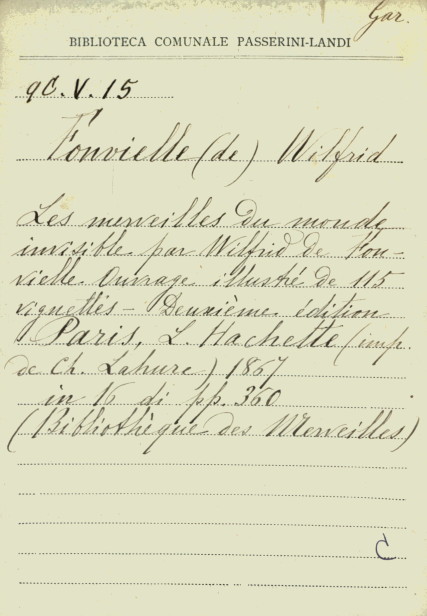 Gar.
BIBLIOTECA COMUNALE PASSERINI-LANDI
9C.V.15
Fonvielle (de) Wilfrid
Les merveilles du monde
invisible par Wilfrid de Fon-
vielle. Ouvrage illustré de 115
vignettes - Deuxième édition
Paris, L. Hachette (imp.
de Ch. Lahure) 1867
in 16 di pp. 360
(Bibliothèque des Merveilles)
C